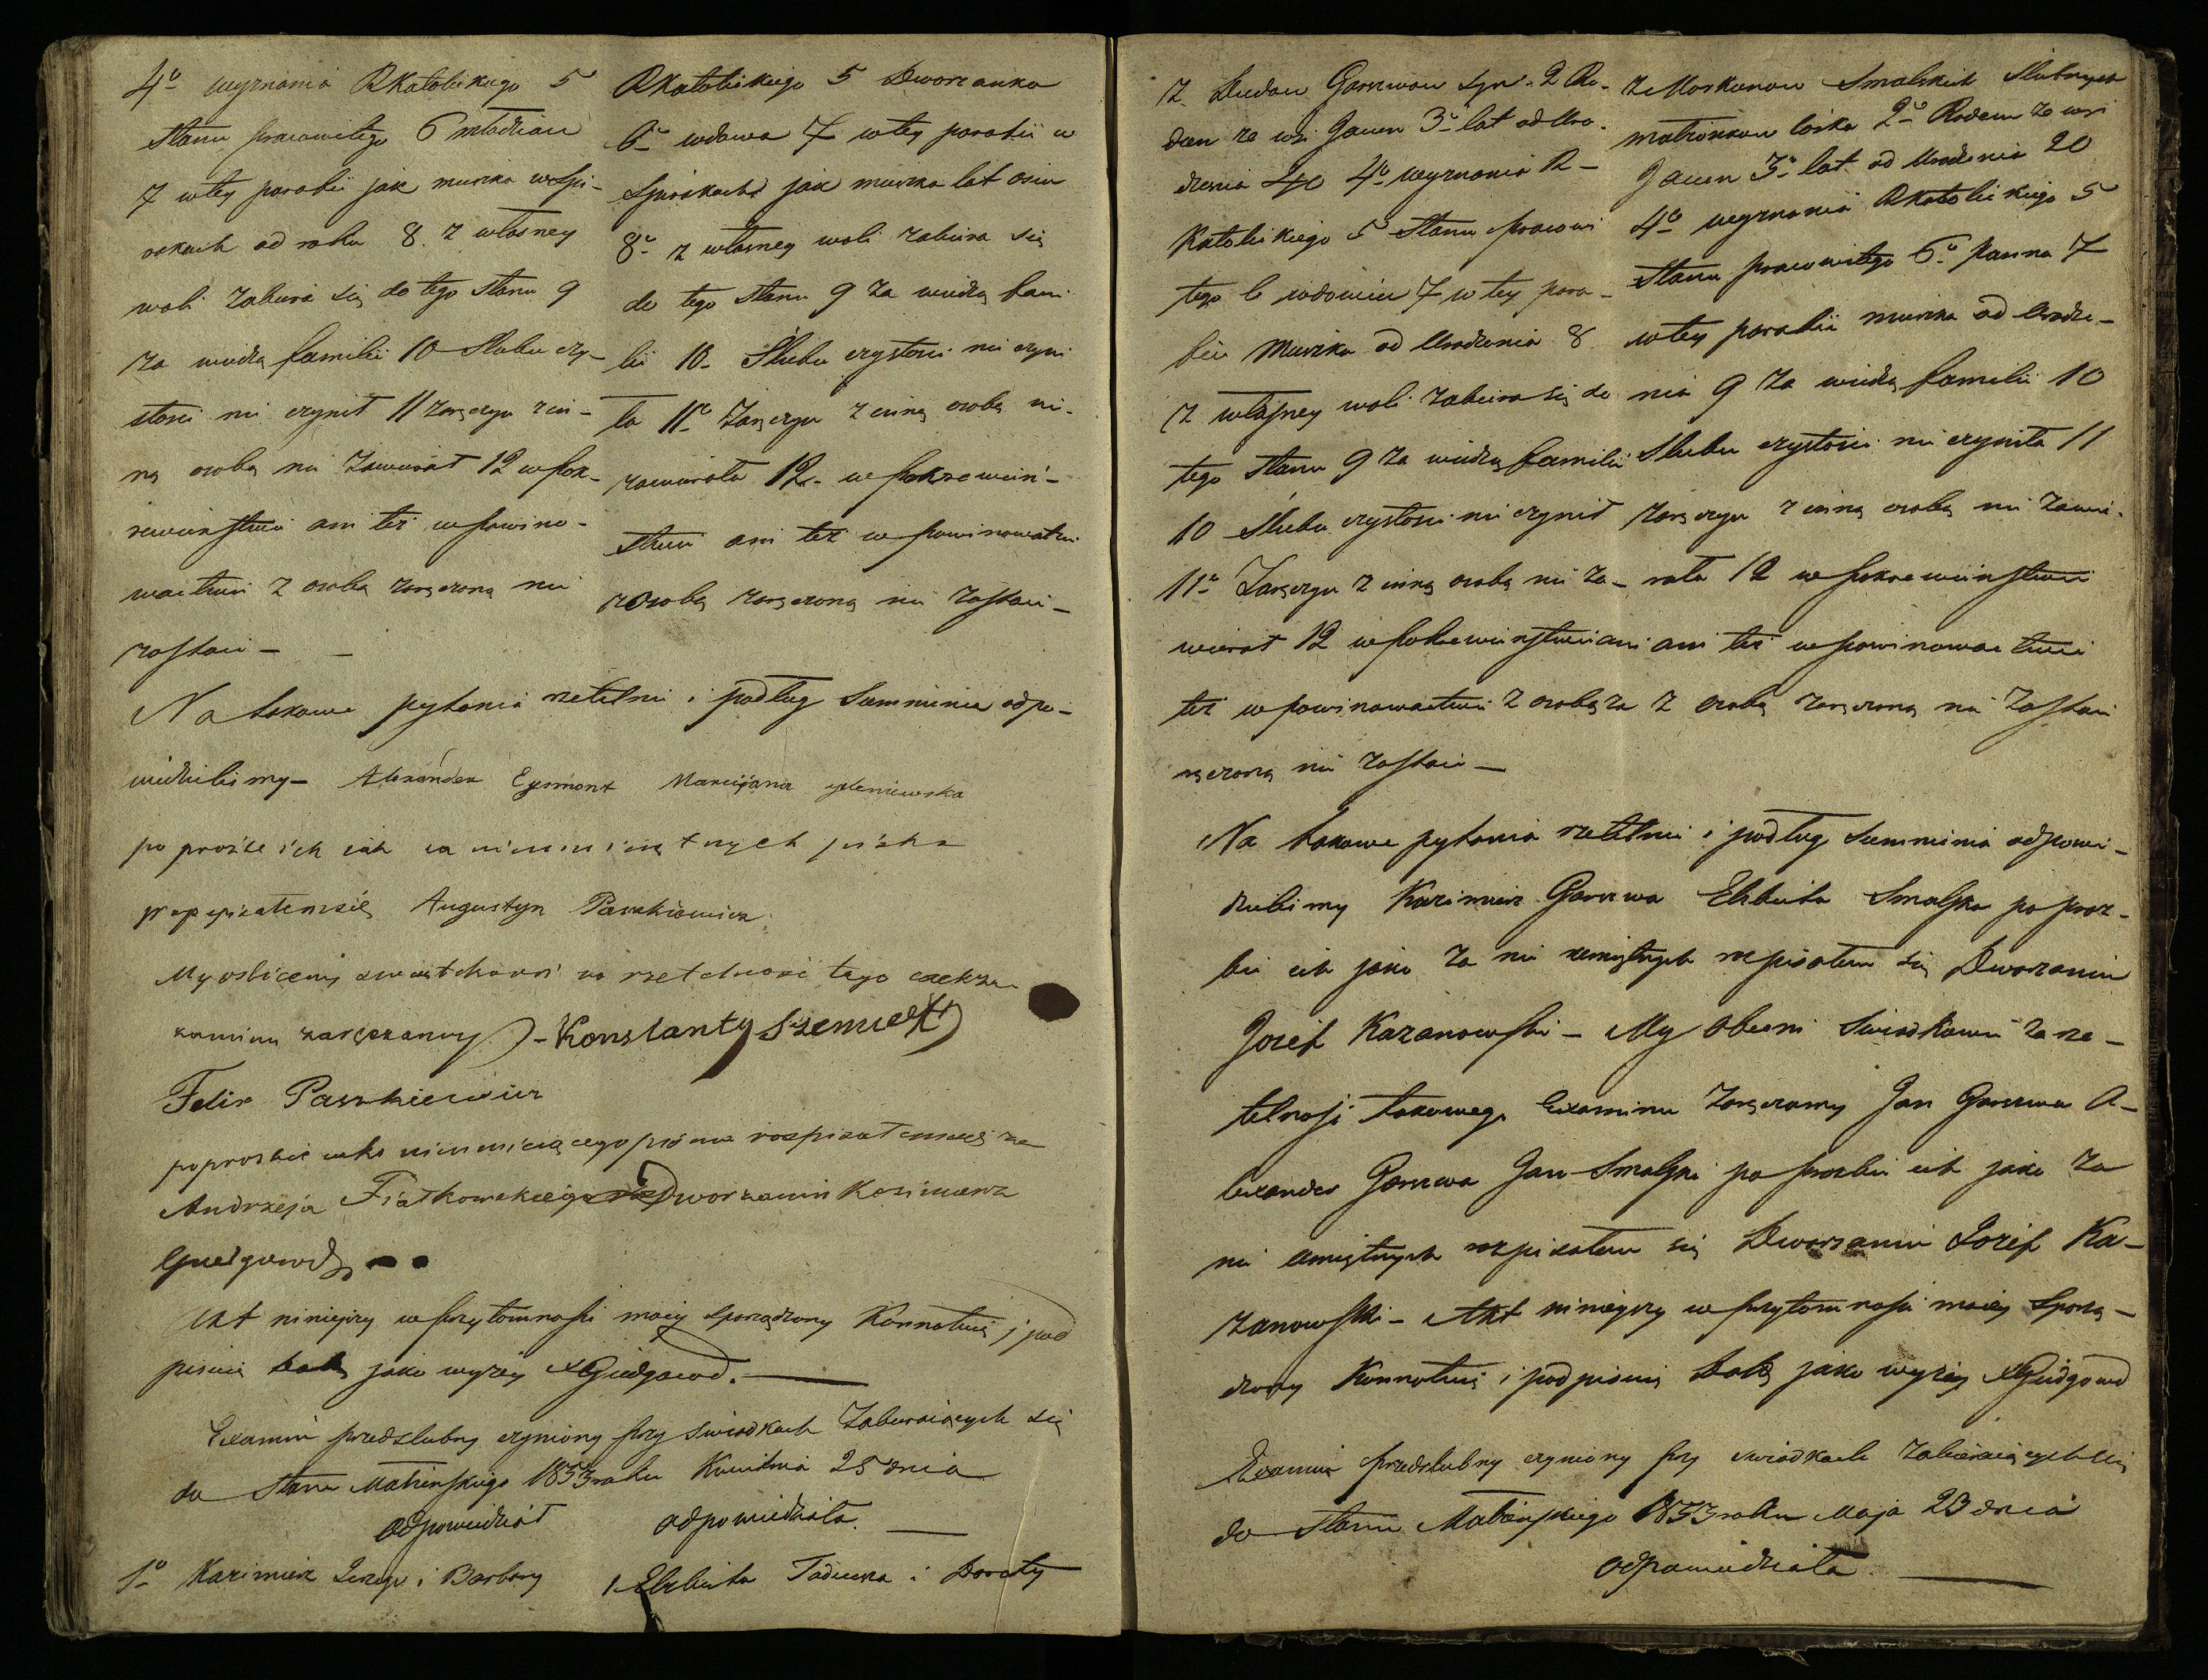 4o wyznania RKatolickiego 5
stanu pracowitego 6 młodzian
7 w tey parafii jak mieszka w Spi-
rakach od roku 8. z własney
woli zabiera się do tego stanu 9
za wiedzą familii 10 Slubu czy-
stosci nie czynił 11 zaręczyn z in-
ną osobą nie zawierał 12 w pok-
rewieństwie ani też w powino-
wactwie z osobą zaręczoną nie
zostaie -
RKatolickiego 5 Dworzanka
6o wdowa 7 w tey parafii w
Spirakachd jak mieszka lat osim
8o z własney woli zabiera się
do tego stanu 9 za wiedzą fami
lii 10. Slubu czystosci nie czyni
ła 11o Zaręczyn z inną osobą nie
zawierała 12. w pokrewień-
stwie ani też w powinowatwie
z osobą zaręczoną nie zostaie -
Na takowe pytania rzetelnie i podług Summienia odpo-
wiedzielismy - Alexander Eysmont Marcijana
po prozbe ich jak za nieumieiętnych piszka
rozpisałemsię Augustyn Paszkiewicz
My oblicznij swiatchowi na rzetelnosc tego
zaminu zaręczamy - Konstanty Szemiett
Felix Paszkiewicz
po prozbie jako nieumieiącego pisma rozpisałemsię za
Andrzeja Fiatkowskiego Dworzanin Kazimierz
Giedgowd
Akt ninieyszy w przytomnosci moiey sporządzony Konnotuię i pod
pisuię datą jako wyżey XGiedgowd.
Examin przedslubny czyniony przy swiadkach Zabieraiących się
do Stanu Małżeńskiego 1853 roku Kwietnia 25 dnia
Odpowiedział odpowiedziała.
1o Kazimierz Jerzego i Barbary
1 Elzbieta Tadeusza i Doroty
z Dudow Garszwow syn. 2 Ro-
dem ze wsi Gauen 3o lat od Uro-
dzenia 40 4o wyznania R-
Katolickiego 5 Stanu pracowi
tego 6 wdowiec 7 w tey para-
fii mieszka od Urodzenia 8
z własney woli zabiera się do
tego stanu 9 za wiedzą familii
10 Slubu czystosci nie czynił
11o Zaręczyn z inną osobą nie za-
wierał 12 w pokrewienstwie ani
też w powinowactwie z osobą za
ręczoną nie zostaie -
z Moskunow Smalskich Slubnych
małżonkow córka 2o Rodem ze wsi
Gauen 3o lat od Urodzenia 20
4o wyznania RKatolickiego 5
Stanu pracowitego 6o panna 7
w tey parafii mieszka od Urodze-
nia 9 za wiedzą familii 10
Slubu czystosci nie czyniła 11
zaręczyn z inną osobą nie zawie-
rała 12 w pokrewienstwie
ani też w powinowactwie
z osobą zaręczoną nie zostaie
Na takowe pytania rzetelnie i podług Summienia odpowie-
dzielismy Kazimierz Garszwa Elzbieta Smalska po proz-
bie ich jako za nie umiętnych rozpisałem się Dworzanin
Jozef Kazanowski - My obecni Swiadkowie za rze-
telnosc takowego Examinu Zaręczamy Jan Garszwa A-
lexander Garszwa Jan Smalski po prozbie ich jako za
nie umiętnych rozpisałem się Dworzanin Jozef Ka-
zanowski - Akt ninieyszy w przytomnosci moiey Sporzą-
dzony Konnotuię i podpisuię Datą jako wyżey XGiedgowd
Examin przedslubny czyniony przy swiadkach Zabieraiących się
do Stanu Małżeńskiego 1853 roku Maja 23 dnia
Odpowiedziała.